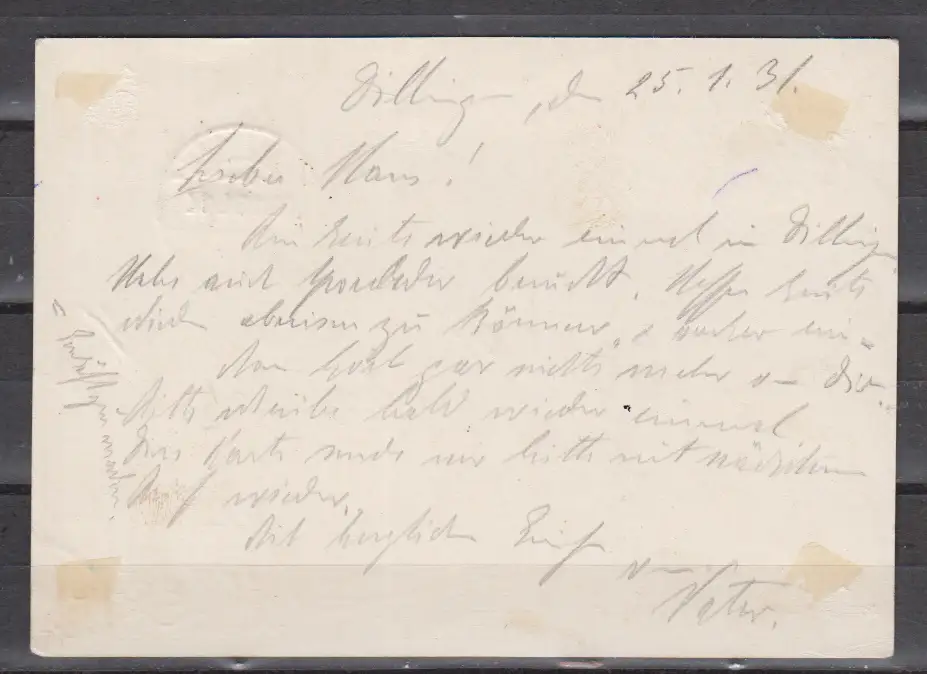 Dillingen, den 25. 1. 31.
Lieber Hans!
Bin heute wieder einmal in Dillingen
Habe auch besucht. Hoffe heute
wieder abreisen zu können,
Man hört gar nichts mehr von Dir.
Bitte schreibe bald wieder einmal.
Diese Karte sende mir bitte mit nächstem
Brief wieder.
Mit herzlichem Gruß
von
Vater.